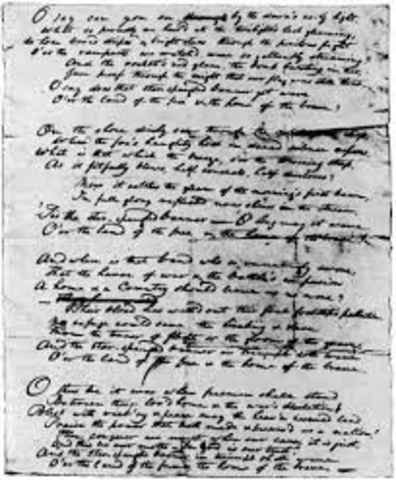 O say can you see by the dawn's early light,
What so proudly we hail'd at the twilight's last gleaming,
Whose broad stripes & bright stars through the perilous fight
O'er the ramparts we watch'd were so gallantly streaming?
And the rocket's red glare, the bomb bursting in air,
Gave proof through the night that our flag was still there,
O say does that star-spangled banner yet wave
O'er the land of the free & the home of the brave?
On the shore dimly seen through the deep,
Where the foe's haughty host in dread silence reposes,
What is that which the breeze, o'er the towering steep,
As it fitfully blows, half conceals, half discloses?
Now it catches the gleam of the morning's first beam,
In full glory reflected now shines in the stream,
'Tis the star-spangled banner — O long may it wave
O'er the land of the free & the home of the brave!
And where is that band who so vauntingly swore,
That the havoc of war & the battle's confusion
A home & a Country should leave us no more?
Their blood has wash'd out their foul footsteps pollution
No refuge could save the hireling & slave
From the terror of flight or the gloom of the grave,
And the star-spangled banner in triumph doth wave
O'er the land of the free & the home of the brave.
O thus be it ever when freemen shall stand
Between their lov'd home & the war's desolation!
Blest with vict'ry & peace may the heav'n rescued land
Praise the power that hath made & preserv'd us a nation!
Then conquer we must, when our cause it is just,
And this be our motto — In God is our trust,
And the star-spangled banner in triumph shall wave
O'er the land of the free & the home of the brave. —